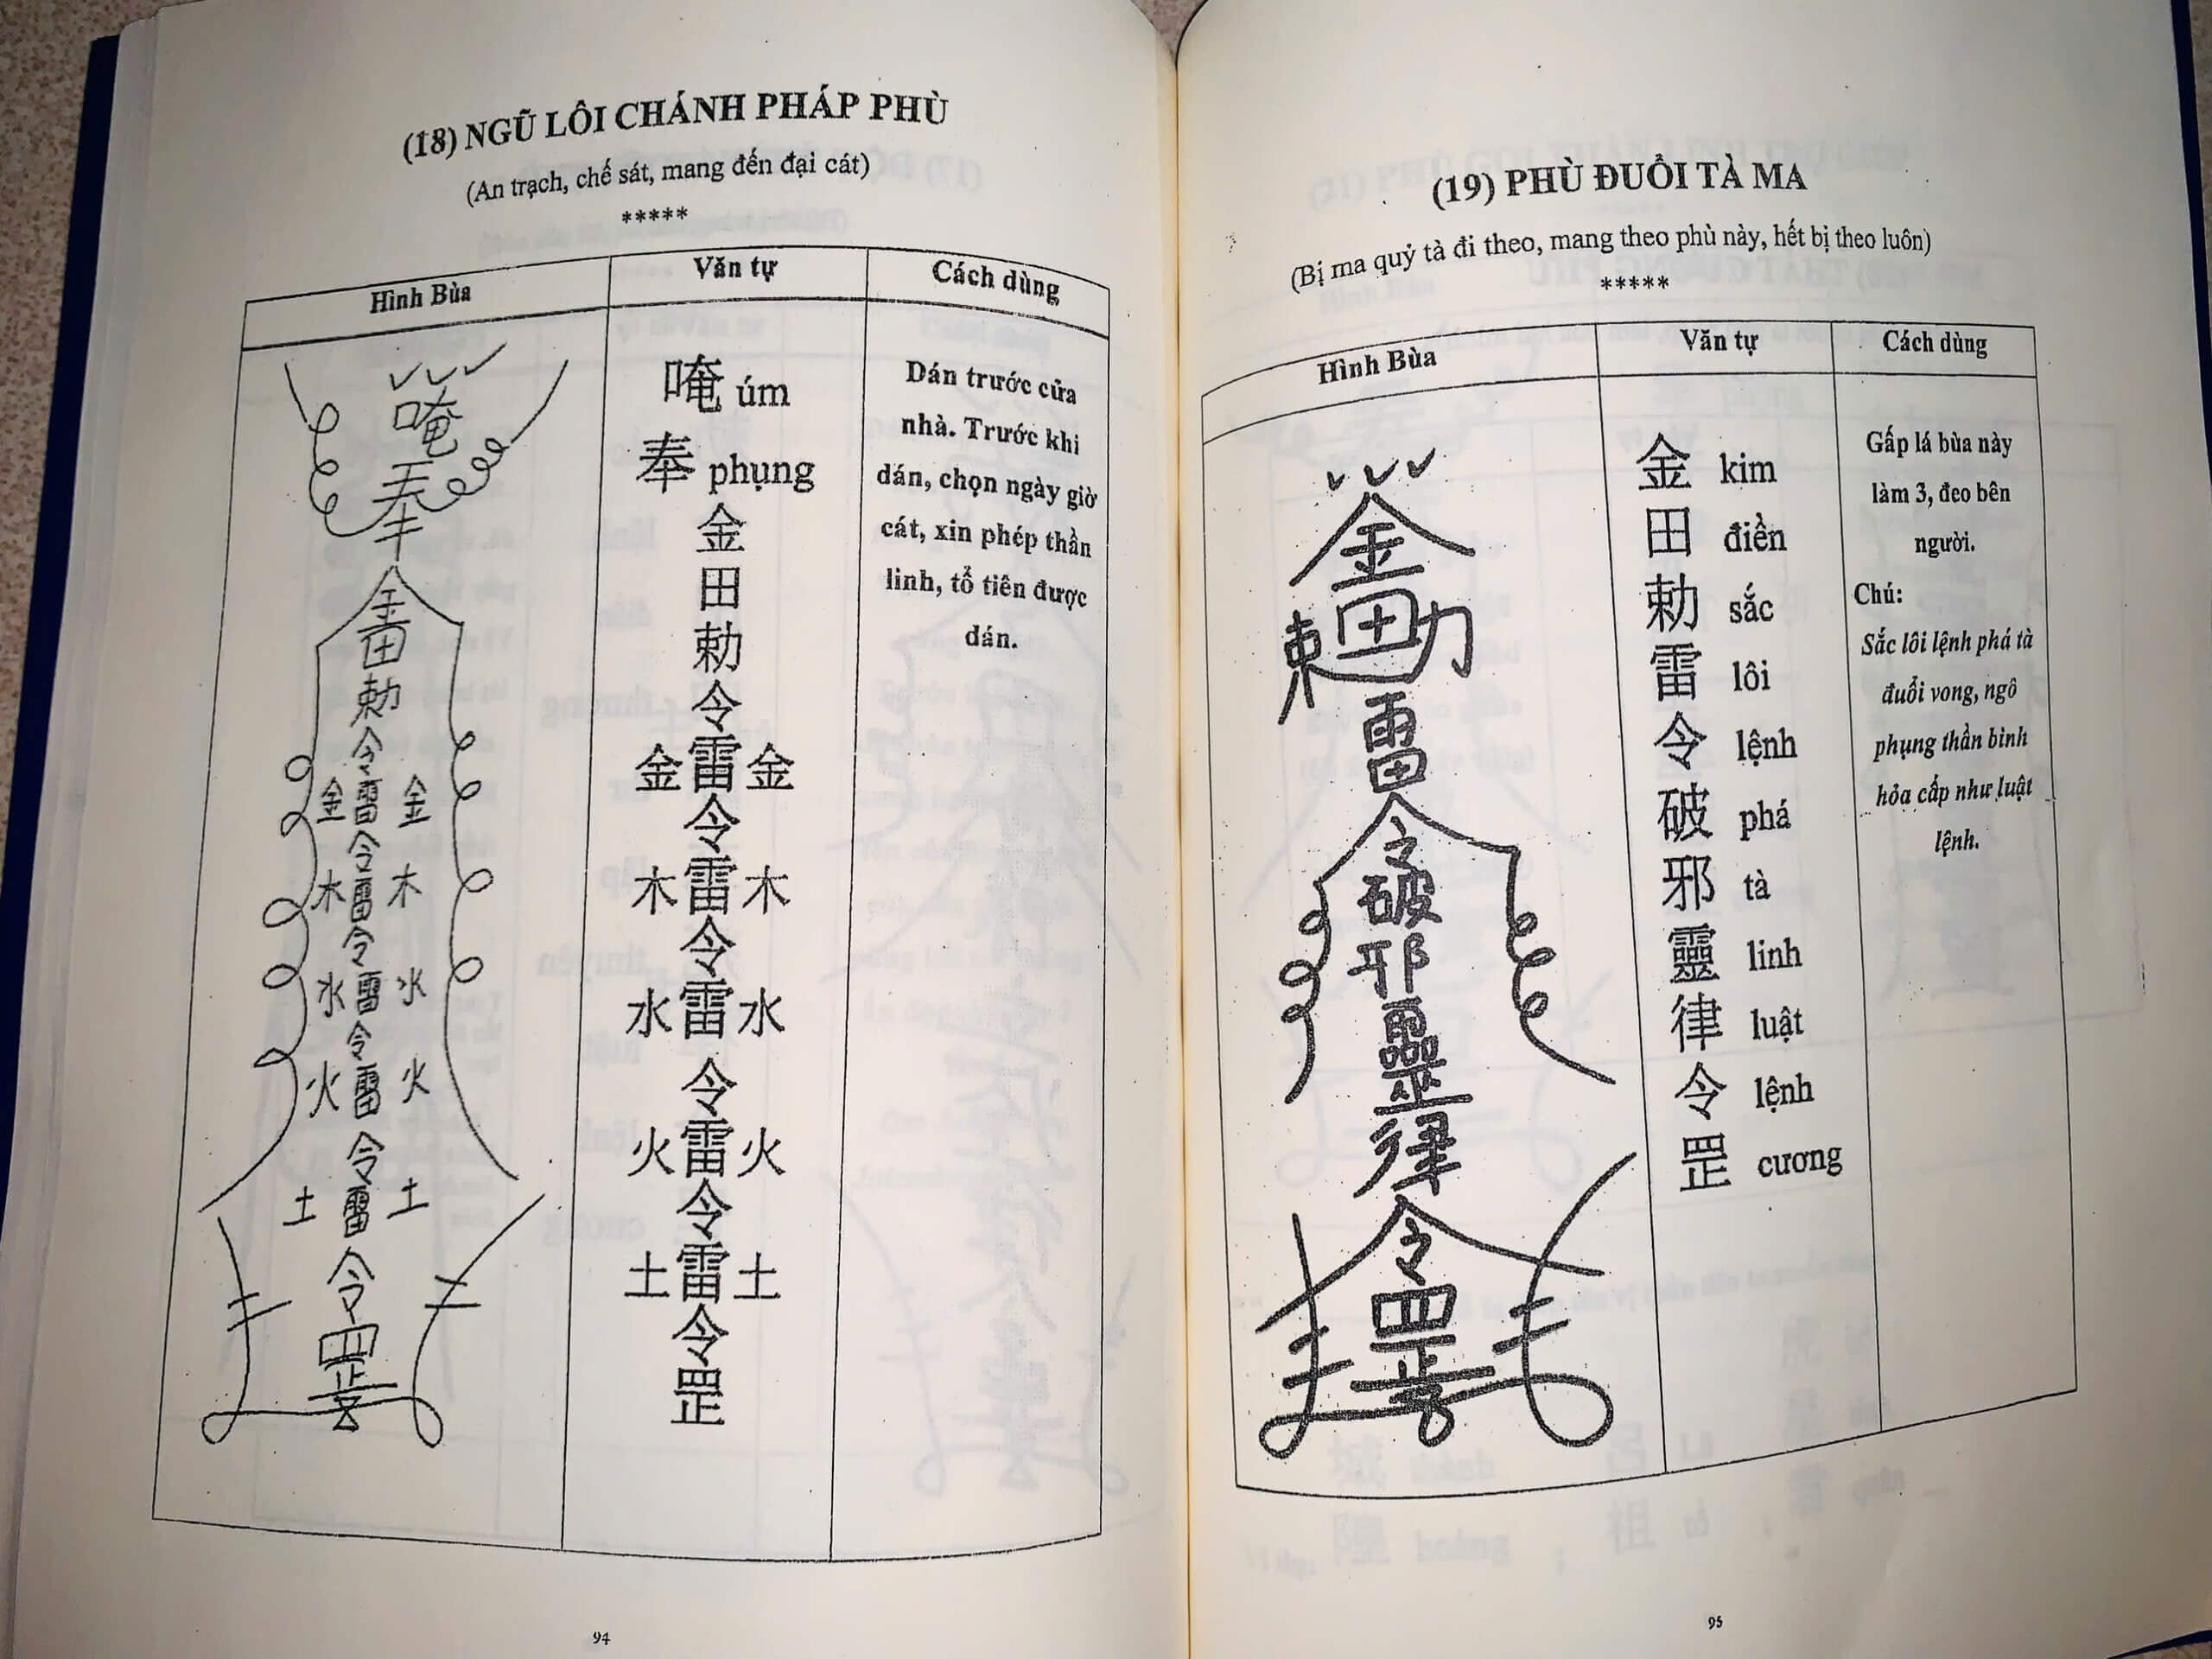 (18) NGŨ LÔI CHÁNH PHÁP PHÙ
(An trạch, chế sát, mang đến đại cát)
*****
Hình Bùa
Văn tự
Cách dùng
唵
奉
金
田
勅
令
金雷金
令
木雷木
令
水雷水
令
火雷火
令
土雷土
令
罡
唵 úm
奉 phụng
金
田
勅
令
金雷金
令
木雷木
令
水雷水
令
火雷火
令
土雷土
令
罡
Dán trước cửa
nhà. Trước khi
dán, chọn ngày giờ
cát, xin phép thần
linh, tổ tiên được
dán.
94
(19) PHÙ ĐUỔI TÀ MA
(Bị ma quỷ tà đi theo, mang theo phù này, hết bị theo luôn)
*****
Hình Bùa
Văn tự
Cách dùng
金
田
勅
雷
令
破
邪
靈
律
令
罡
金 kim
田 điền
勅 sắc
雷 lôi
令 lệnh
破 phá
邪 tà
靈 linh
律 luật
令 lệnh
罡 cương
Gấp lá bùa này
làm 3, đeo bên
người.
Chú:
Sắc lôi lệnh phá tà
đuổi vong, ngô
phụng thần binh
hỏa cấp như luật
lệnh.
95